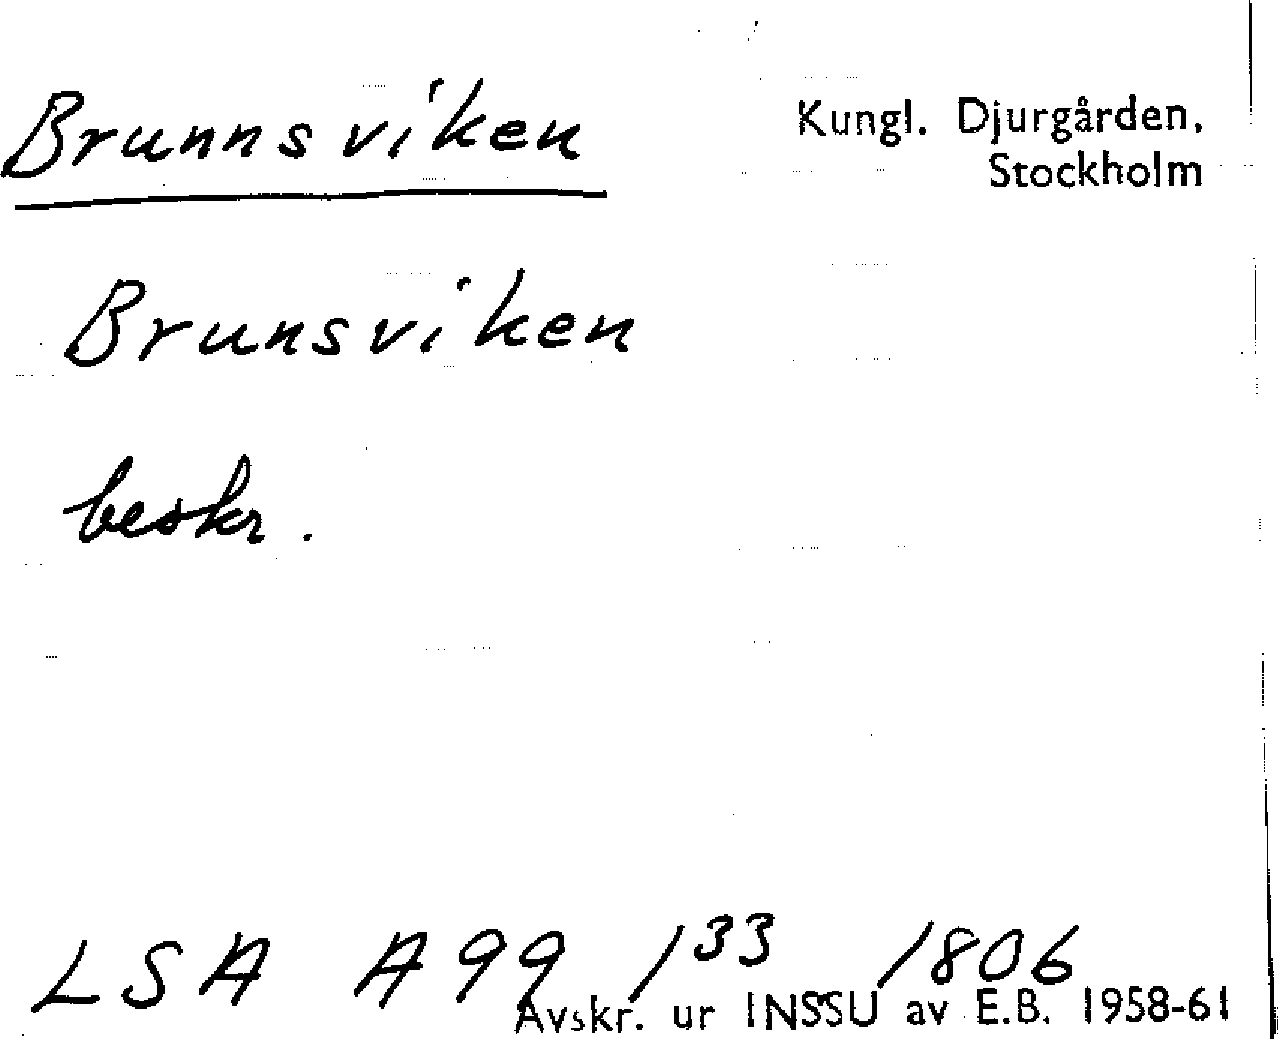 Brunnsviken
Kungl. Djurgården,
Stockholm
Brunsviken
beskr.
LSA A99 /33 /1806
Avskr. ur INSSU av E.B. 1958-61